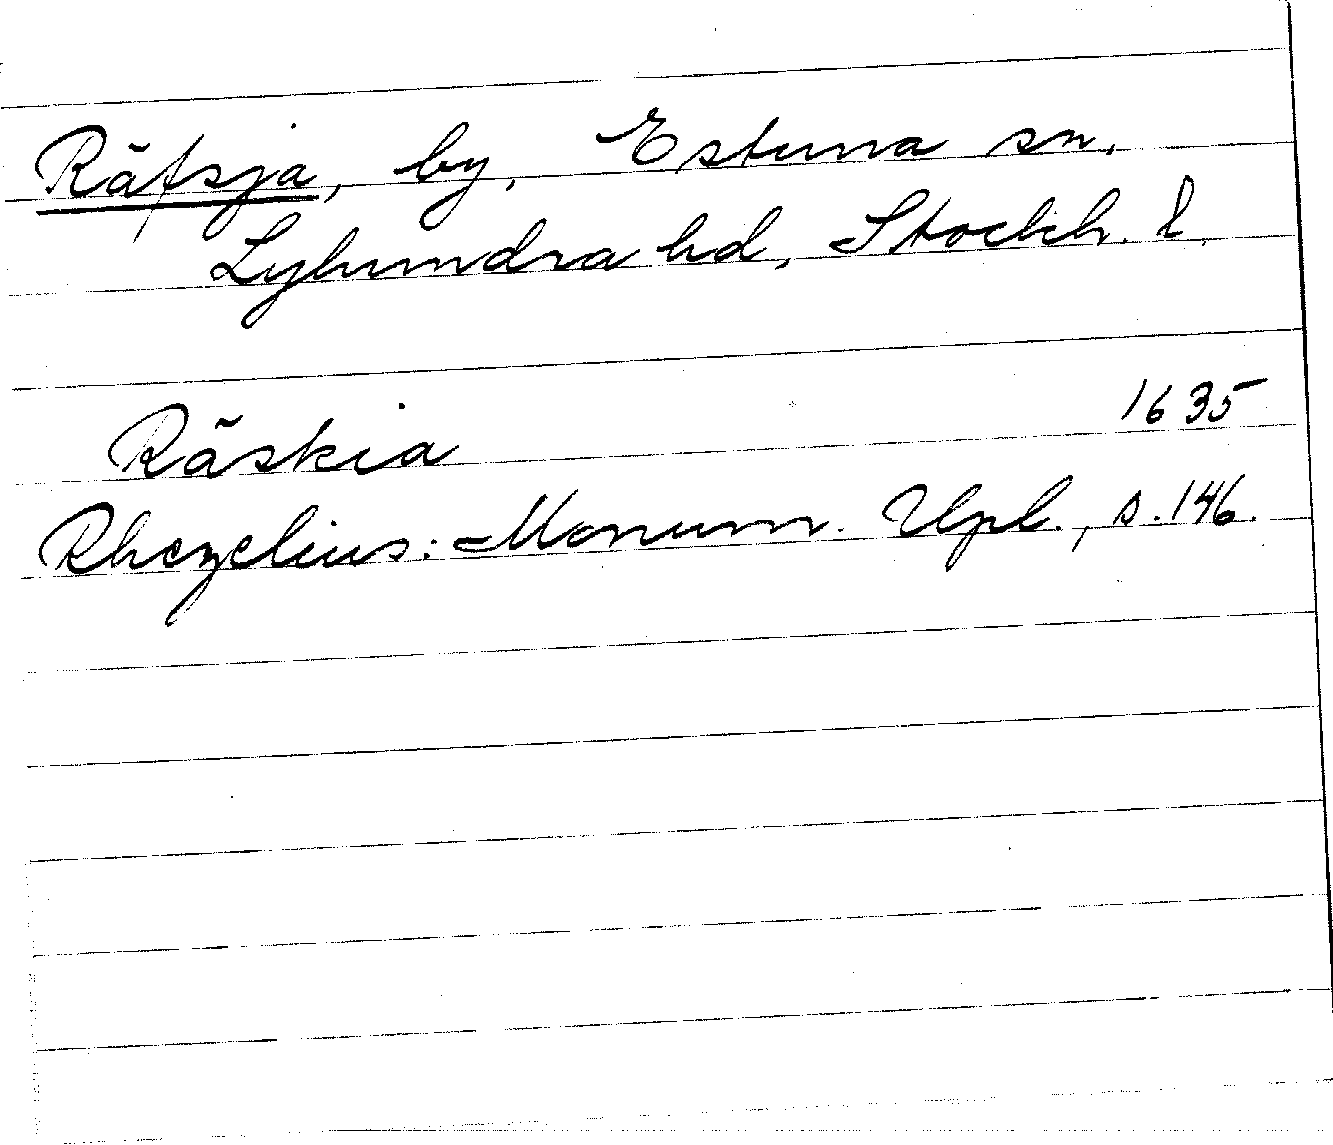 Räfsja, by, Estuna sn,
Lyhundra hd, Stockh. l.
Räskia 1635
Rhezelius: Monum. Upl., s. 146.